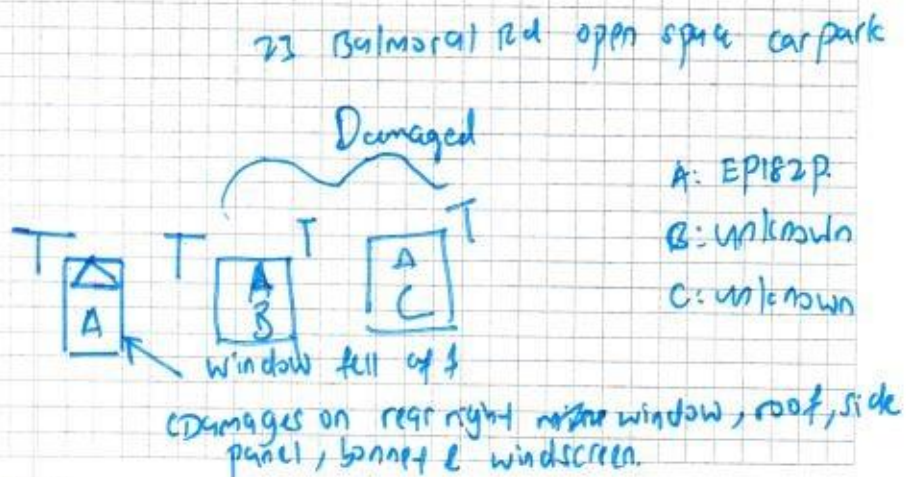 23 Balmoral Rd open space carpark
Damaged
A: EP182P.
B: unknown
C: unknown
T T T T
A B C
window fell off
(Damages on rear right window, roof, side
panel, bonnet & windscreen.